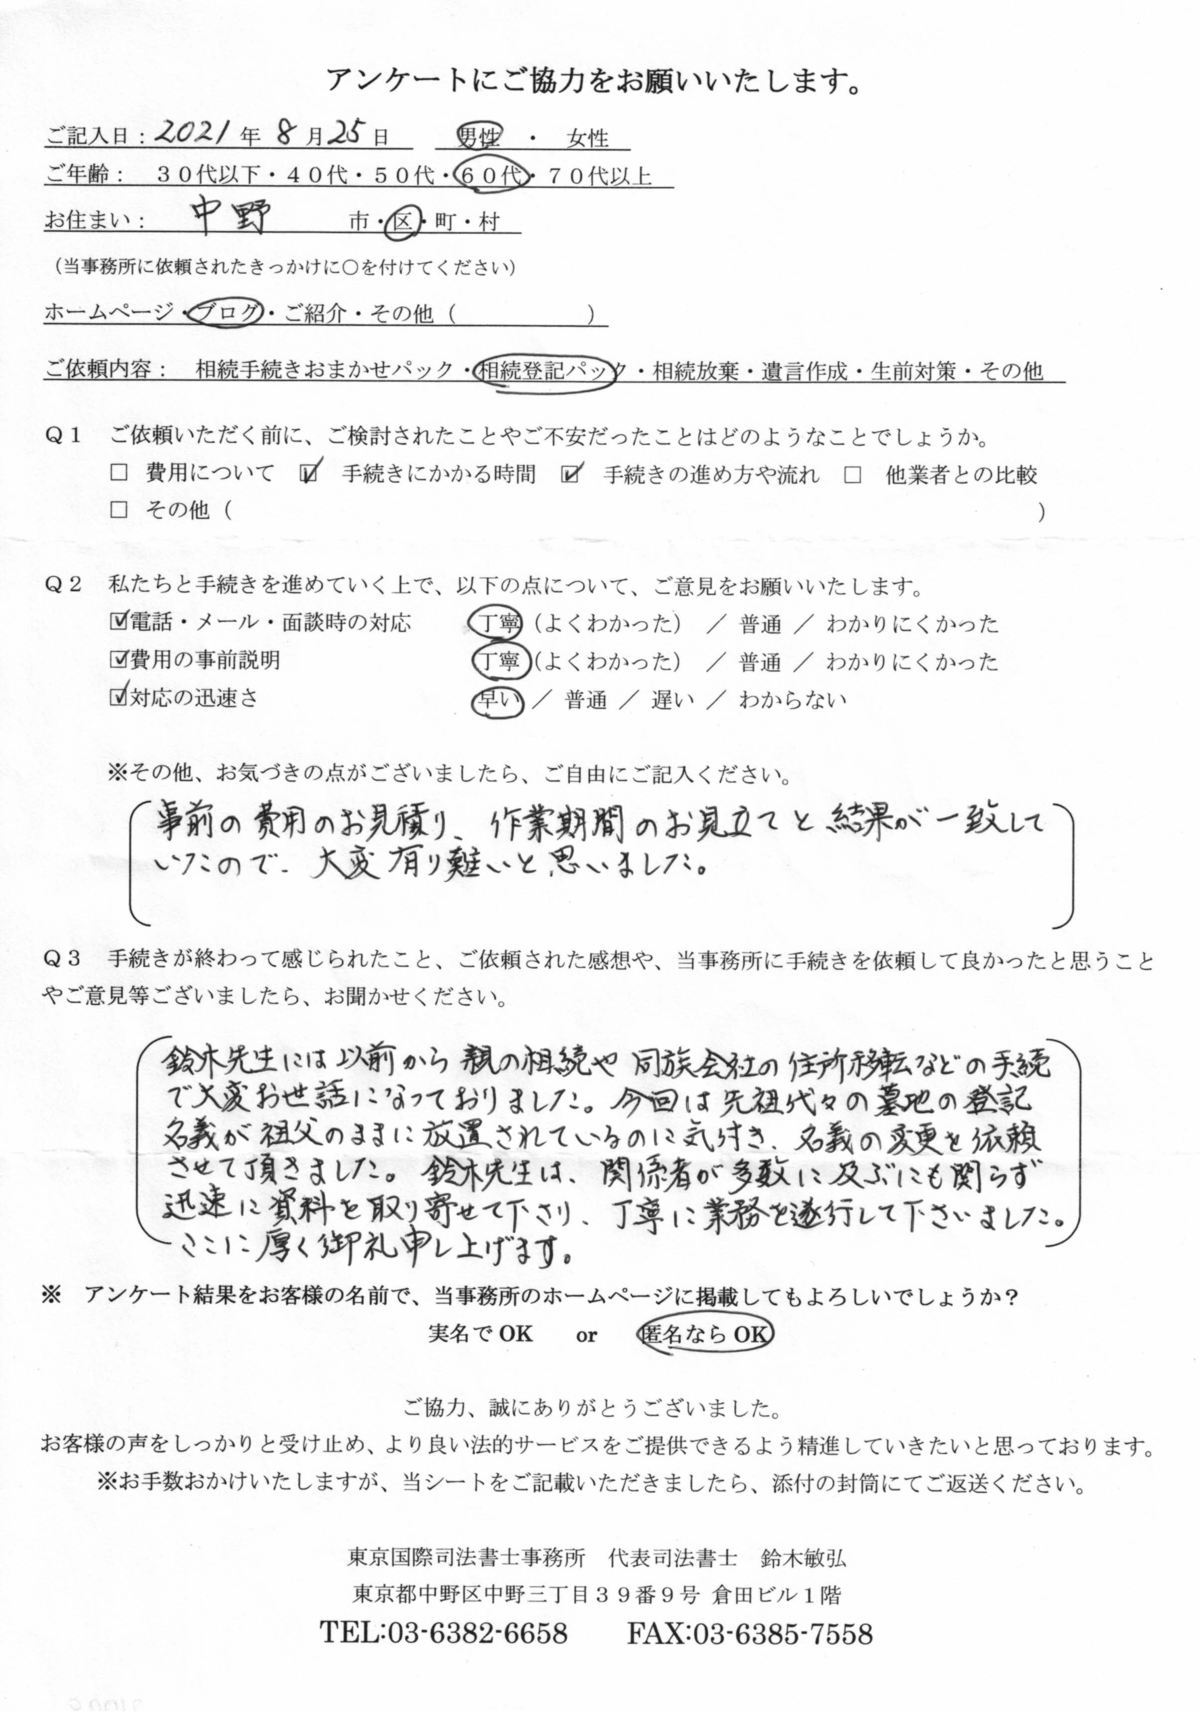 アンケートにご協力をお願いいたします。
ご記入日：2021年 8月25日　男性 ・ 女性
ご年齢：　３０代以下・４０代・５０代・６０代・７０代以上
お住まい：　中野　市・区・町・村
（当事務所に依頼されたきっかけに〇を付けてください）
ホームページ・ブログ・ご紹介・その他（　　　　　　）
ご依頼内容：　相続手続きおまかせパック・相続登記パック・相続放棄・遺言作成・生前対策・その他
Ｑ１　ご依頼いただく前に、ご検討されたことやご不安だったことはどのようなことでしょうか。
□ 費用について　☑ 手続きにかかる時間　☑ 手続きの進め方や流れ　□ 他業者との比較
□ その他（　　　　　　　　　　　　）
Ｑ２　私たちと手続きを進めていく上で、以下の点について、ご意見をお願いいたします。
☑電話・メール・面談時の対応　丁寧（よくわかった） ／ 普通 ／ わかりにくかった
☑費用の事前説明　丁寧（よくわかった） ／ 普通 ／ わかりにくかった
☑対応の迅速さ　早い ／ 普通 ／ 遅い ／ わからない
※その他、お気づきの点がございましたら、ご自由にご記入ください。
事前の費用のお見積り、作業期間のお見立てと結果が一致して
いたので、大変有り難いと思いました。
Ｑ３　手続きが終わって感じられたこと、ご依頼された感想や、当事務所に手続きを依頼して良かったと思うこと
やご意見等ございましたら、お聞かせください。
鈴木先生には以前から親の相続や同族会社の住所移転などの手続
で大変お世話になっておりました。今回は先祖代々の墓地の登記
名義が祖父のままに放置されているのに気付き、名義の変更を依頼
させて頂きました。鈴木先生は、関係者が多数に及ぶにも関らず
迅速に資料を取り寄せて下さり、丁寧に業務を遂行して下さいました。
ここに厚く御礼申し上げます。
※　アンケート結果をお客様の名前で、当事務所のホームページに掲載してもよろしいでしょうか？
実名でOK　or　匿名ならOK
ご協力、誠にありがとうございました。
お客様の声をしっかりと受け止め、より良い法的サービスをご提供できるよう精進していきたいと思っております。
※お手数おかけいたしますが、当シートをご記載いただきましたら、添付の封筒にてご返送ください。
東京国際司法書士事務所　代表司法書士　鈴木敏弘
東京都中野区中野三丁目３９番９号 倉田ビル１階
TEL:03-6382-6658　FAX:03-6385-7558